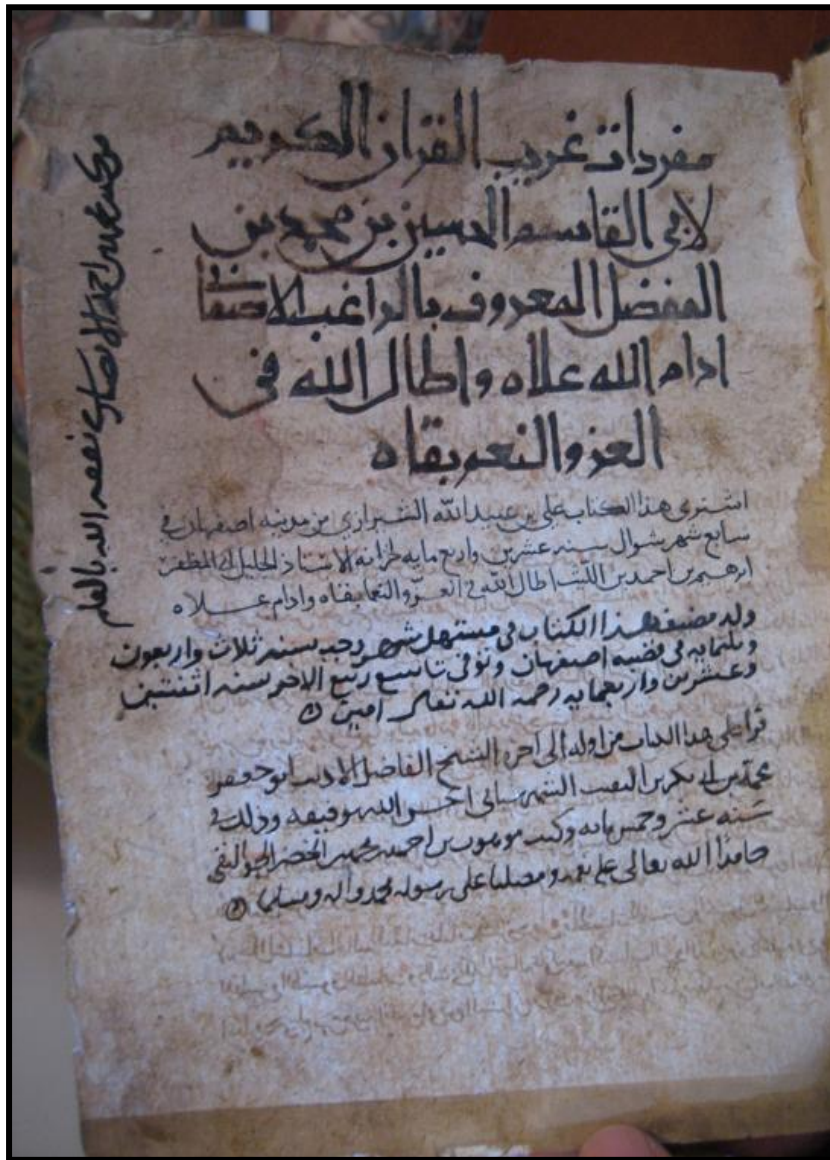 مفردات غريب القران الكريم
لابي القاسم الحسين بن محمد بن
المفضل المعروف بالراغب الاصفهاني
ادام الله علاه واطال الله في
العز والنعم بقاه
اشترى هذا الكتاب علي بن عبيد الله الشيرازي من مدينه اصفهان في
سابع شهر شوال سنه عشرين واربع مايه لخزانه الاستاذ الجليل ابي المظفر
ابرهيم بن احمد بن الليث اطال الله في العز والنعما بقاه وادام علاه
ولد مصنف هذا الكتاب في مستهل شهر رجب سنه ثلاث واربعون
وثلثمايه في قصبه اصفهان وتوفى تاسع ربيع الاخر سنه اثنتين
وعشرين واربعمايه رحمه الله تعالى امين
قرا علي هذا الكتاب من اوله الى اخره الشيخ الفاضل الاديب ابو جعفر
محمد بن ابي بكر بن النقيب الشهرستاني احسن الله توفيقه وذلك في
سنه عشر وخمس مايه وكتب موهوب بن احمد بن محمد بن الخضر الجواليقي
حامدا الله تعالى على نعمه ومصليا على رسوله محمد واله ومسلما
محمد بن احمد الانصاري نفعه الله بالعلم